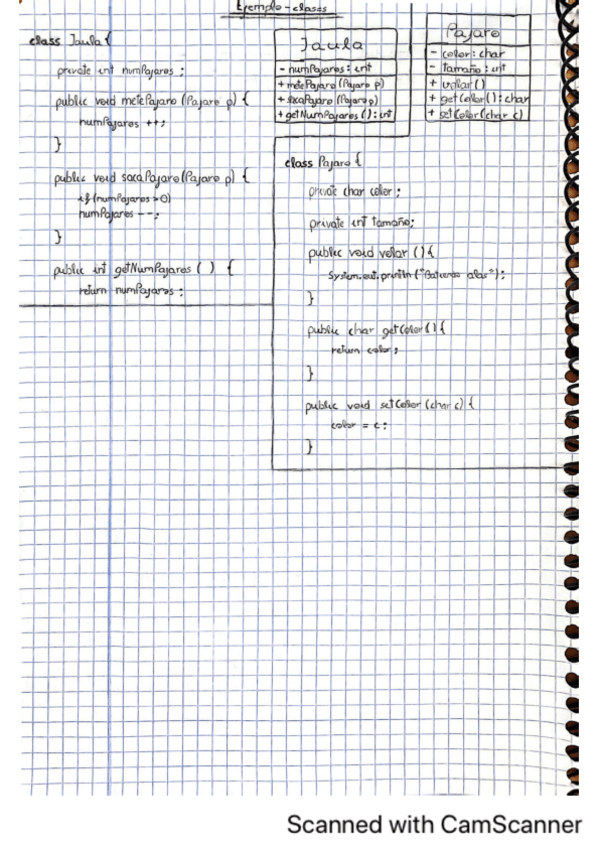 Ejemplo-clases
class Jaula {
private int numPajaros ;
public void metePajaro (Pajaro p) {
numPajaros ++;
}
public void sacaPajaro (Pajaro p) {
if (numPajaros > 0)
numPajaros --;
}
public int getNumPajaros ( ) {
return numPajaros ;
Jaula
- numPajaros : int
+ metePajaro (Pajaro p)
+ sacaPajaro (Pajaro p)
+ getNumPajaros () : int
Pajaro
- color : char
- tamaño : int
+ volar ()
+ getColor () : char
+ setColor (char c)
class Pajaro {
private char color ;
private int tamaño;
public void volar () {
System.out.println ("Batiendo alas");
}
public char getColor () {
return color ;
}
public void setColor (char c) {
color = c ;
}
Scanned with CamScanner